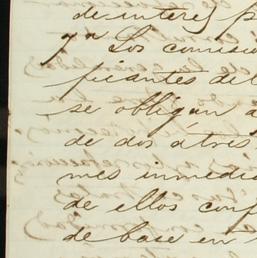 de interes p
7ª Los comisio
picantes del
se obligan a
de dos a tres
mes inmedia
de ellos conf
de base en